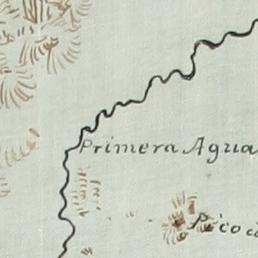 Primera Agua
Pico